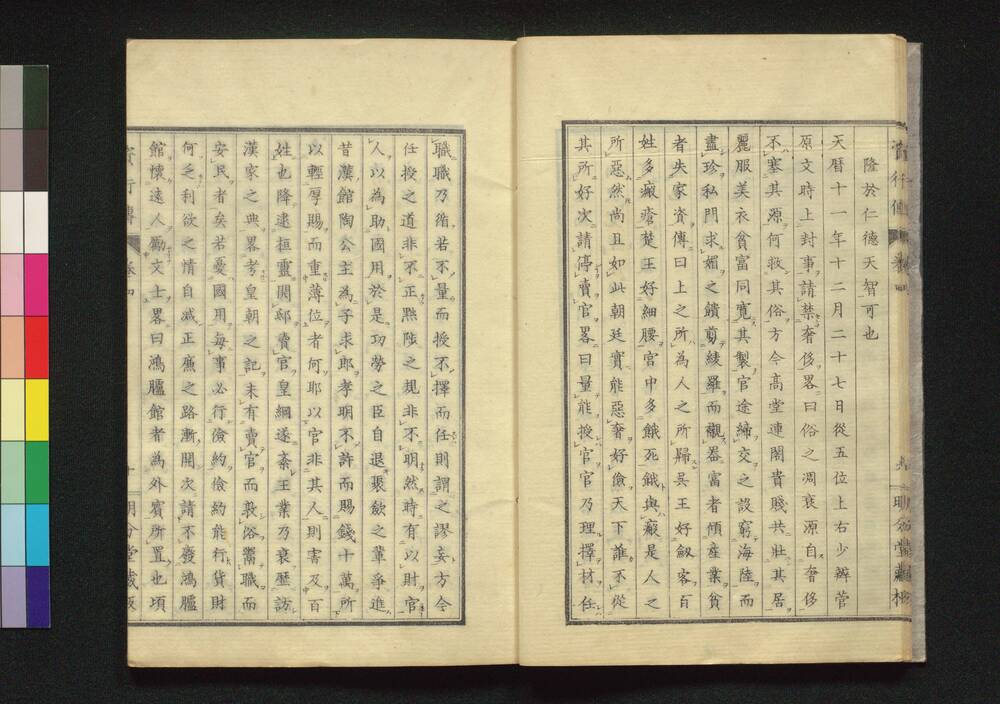 隆於仁德天智可也
天曆十一年十二月二十七日從五位上右少辨菅
原文時上封事請禁奢侈畧曰俗之凋衰源自奢侈
不塞其源何救其俗方今高堂連閣貴賤共壯其居
麗服美衣貧富同寬其製官途締交之設窮海陸而
盡珍私門求媚之饋剪綾羅而襯器富者傾產業貧
者失家資傳曰上之所為人之所歸吳王好劔客百
姓多瘢瘡楚王好細腰宮中多餓死餓與瘢是人之
所惡然尚且如此朝廷實能惡奢好儉天下誰不從
其所好次請停賣官畧曰量能授官官乃理擇材任
職職乃脩若不量而授不擇而任則謂之謬妄方今
任授之道非不正黜陟之規非不明然時有以財官
人以為助國用於是功勞之臣自退聚斂之輩爭進
昔漢館陶公主為子求郎孝明不許而賜錢十萬所
以輕厚賜而重薄位者何耶以官非其人則害及百
姓也降逮桓靈開邸賣官皇綱遂紊王業乃衰歷訪
漢家之典畧考皇朝之記未有賣官而敦俗鬻職而
安民者矣若憂國用每事必行儉約儉約能行貨財
何乏利欲之情自滅正廉之路漸開次請不廢鴻臚
館懷遠人勵文士畧曰鴻臚館者為外賓所置也頃
行傳
卷四
明分堂藏版